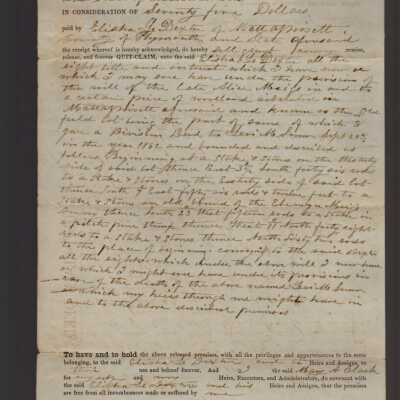 IN CONSIDERATION OF Seventy five Dollars
paid by Elisha L. Dexter of Mattapoisett
County of Plymouth and State aforesaid
the receipt whereof is hereby acknowledged, do hereby sell grant remise,
release, and forever QUIT-CLAIM, unto the said Elisha L. Dexter all the
right title and interest which I now have or
which I may ever have under the provision of
the will of the late Alice Meigs in and to
a certain piece of woodland situated in
Mattapoisett aforesaid and known as the Old
field lot being the part of same of which I
gave a Division Bond to
in the year 1862 and bounded and described as
follows Beginning at a Stake & Stones on the
side of said lot thence East 3½ South forty six rods
to a Stake & Stones on the Easterly side of said lot
thence South 7 East fifty six rods & twelve feet to a
Stake & Stones an old bound of the Ebenezer Meigs
thence South 23 West fifteen rods to a Stake in
a pitch pine stump thence West 11 North forty eight
rods to a Stake & Stones thence North sixty two rods
to the place of beginning conveying to the said Dexter
all the rights which under the above will I now have
or which I might ever have under its provisions in
case of the death of the above named
which my heirs through me might have in
and to the above described premises
To have and to hold the above released premises, with all the privileges and appurtenances to the same
belonging, to the said Elisha L. Dexter and his Heirs and Assigns, to
their use and behoof forever. And I the said Mary A. Clark
for myself and my Heirs, Executors, and Administrators, do covenant with
the said Elisha L. Dexter and his Heirs and Assigns, that the premises
are free from all incumbrances made or suffered by me